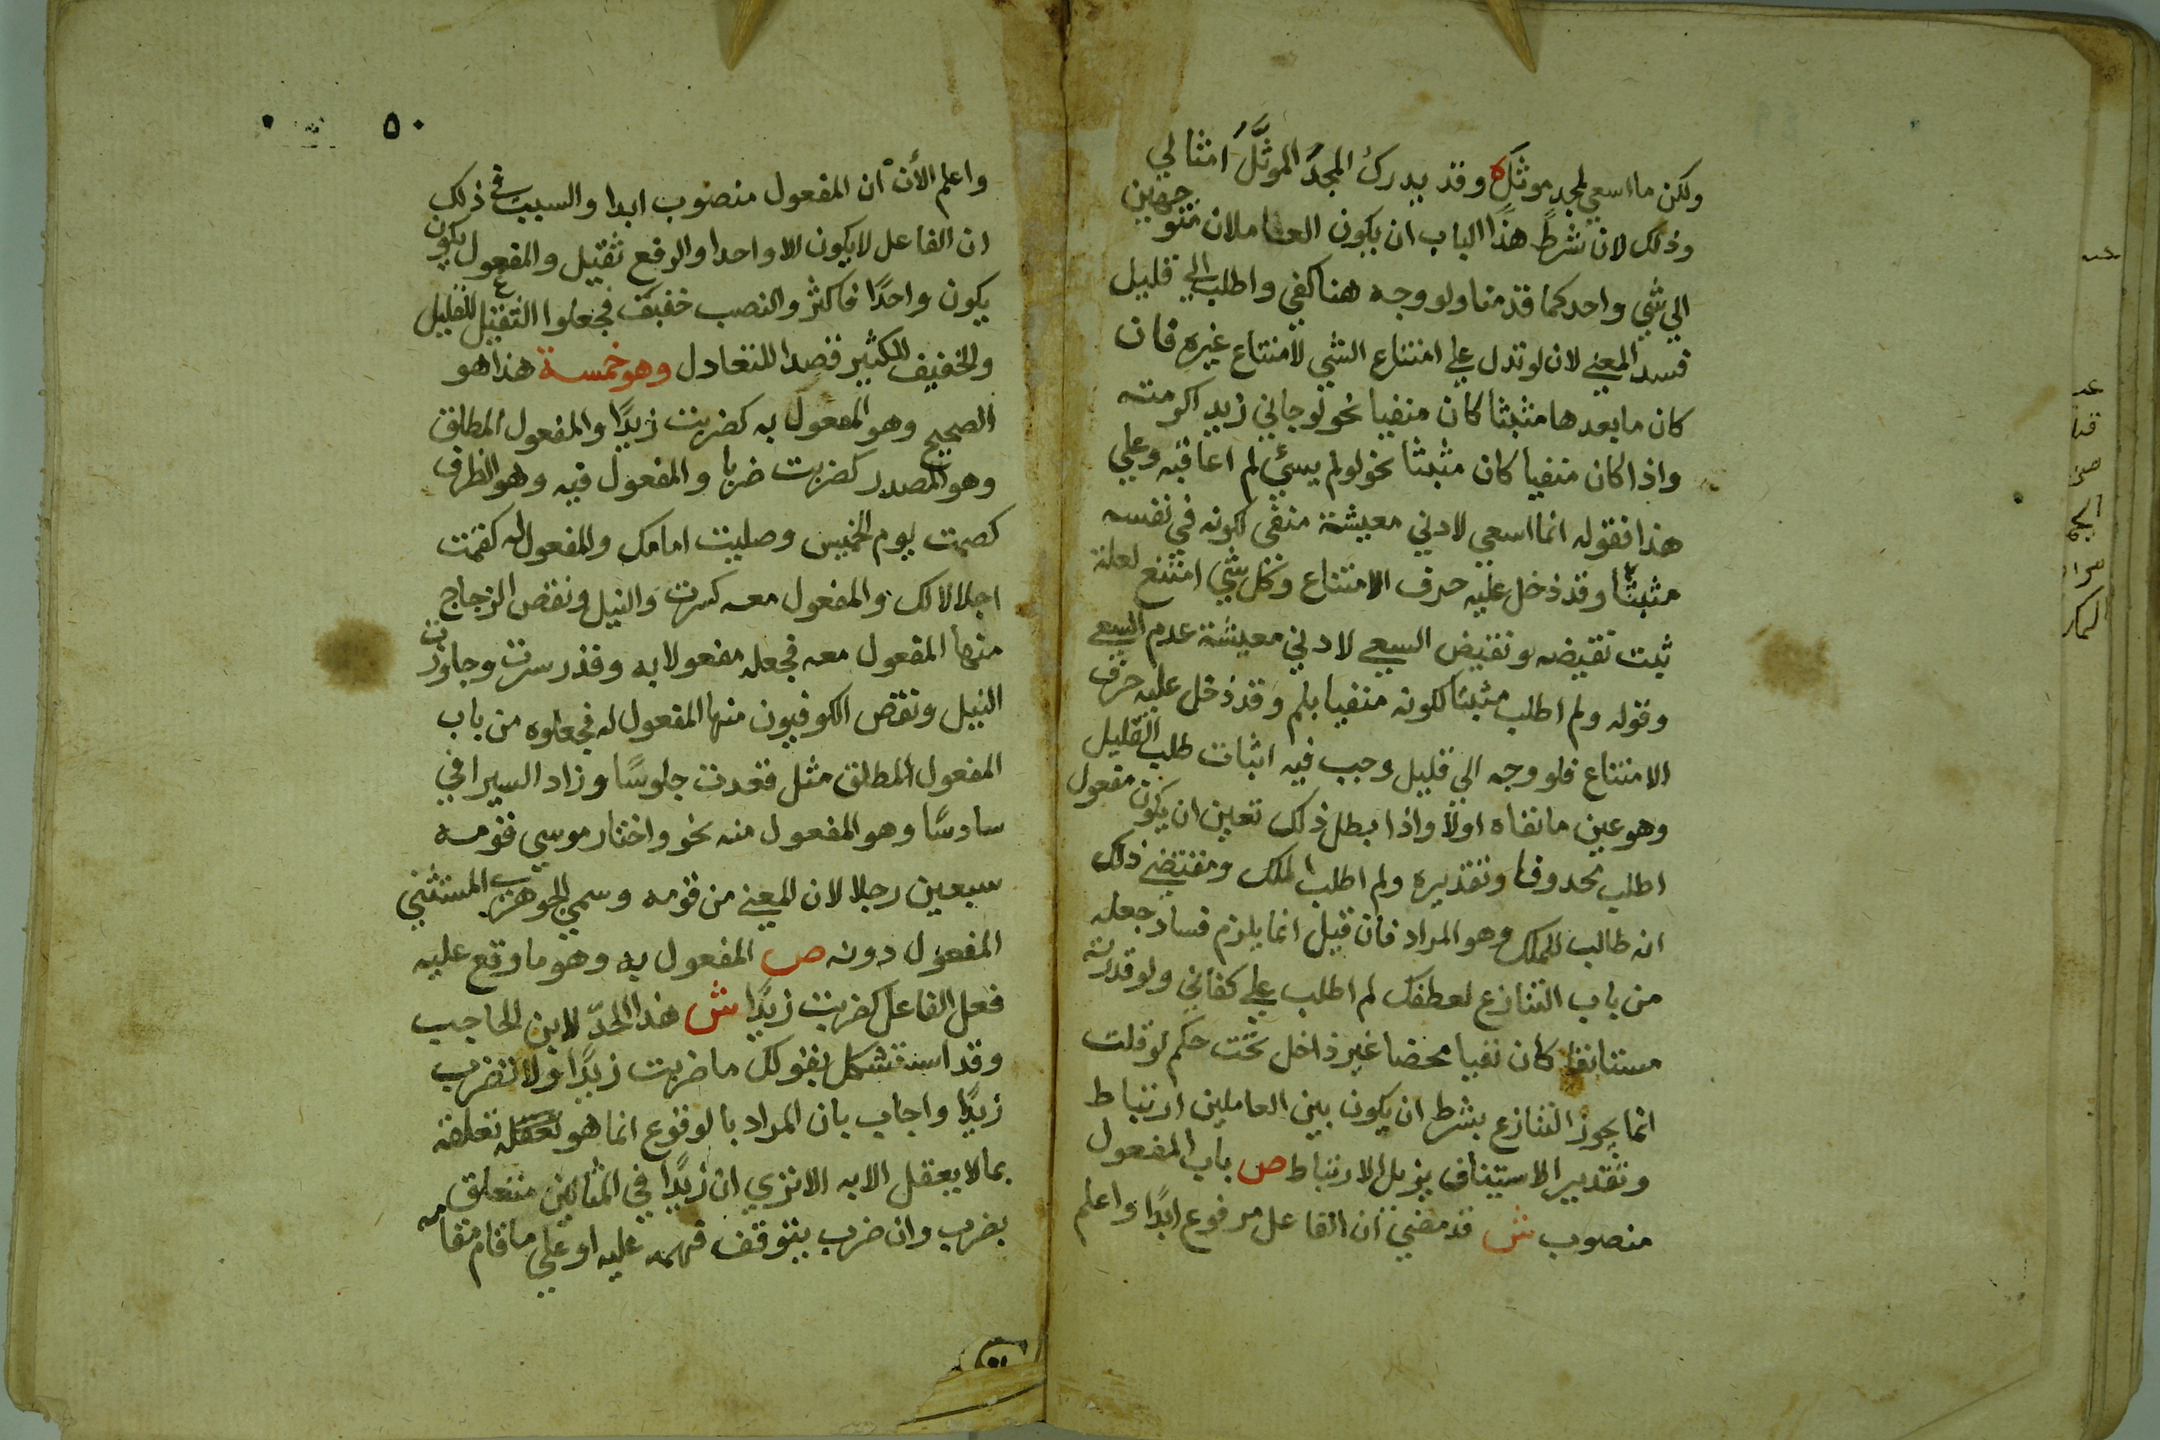 ولكن ما اسعي لمجد موثل وقد يدرك المجدَ الموثَّلَ امثالي
وذلك لان شرط هذا الباب ان يكون العاملان متوجهين
الي شي واحد كما قدمنا ولو وجه هنا كفي واطلب الي قليل
فسد المعني لان لو تدل علي امتناع الشي لامتناع غيره فان
كان ما بعدها مثبتا كان منفيا نحو لو جاني زيد اكرمته
واذا كان منفيا كان مثبتا نحو لو لم يسئ لم اعاقبه وعلي
هذا فقوله انما اسعي لادني معيشة منفي لكونه في نفسه
مثبتا وقد دخل عليه حرف الامتناع وكل شي امتنع لعلة
ثبت نقيضه ونقيض السعي لادني معيشة عدم السعي
وقوله ولم اطلب مثبتا لكونه منفيا بلم وقد دخل عليه حرف
الامتناع فلو وجه الي قليل وجب فيه اثبات طلب القليل
وهو عين ما نفاه اولا واذا بطل ذلك تعين ان يكون مفعول
اطلب محذوفا وتقديره ولم اطلب الملك ومقتضي ذلك
انه طالب للملك وهو المراد فان قيل انما يلزم فساد جعله
من باب التنازع لعطفك لم اطلب علي كفاني ولو قدرته
مستانفا كان نفيا محضا غير داخل تحت حكم لو قلت
انما يجوز التنازع بشرط ان يكون بين العاملين ارتباط
وتقدير الاستيناف يزيل الارتباط ص باب المفعول
منصوب ش قد مضي ان الفاعل مرفوع ابدًا واعلم
٥٠
واعلم الأن ان المفعول منصوب ابدا والسبب في ذلك
ان الفاعل لا يكون الا واحدا والرفع ثقيل والمفعول يكون
يكون واحدًا فاكثر والنصب خفيف فجعلوا الثقيل للقليل
والخفيف للكثير قصدا للتعادل وهو خمسة هذا هو
الصحيح وهو المفعول به كضربت زيدًا والمفعول المطلق
وهو المصدر كضربت ضربا والمفعول فيه وهو الظرف
كصمت يوم الخميس وصليت امامك والمفعول له كقمت
اجلالا لك والمفعول معه كسرت والنيل ونقص الزجاج
منها المفعول معه فجعله مفعولا به وقدر سرت وجاوزت
النيل ونقص الكوفيون منها المفعول له فجعلوه من باب
المفعول المطلق مثل قعدت جلوسًا وزاد السيرافي
سادسًا وهو المفعول منه نحو واختار موسي قومه
سبعين رجلا لان المعني من قومه وسمي الجوهري المستثني
المفعول دونه ص المفعول به وهو ما وقع عليه
فعل الفاعل كضربت زيدًا ش هذا الحدّ لابن الحاجب
وقد استشكل بقولك ما ضربت زيدًا ولا تضرب
زيدًا واجاب بان المراد بالوقوع انما هو تعلقه
بما لا يعقل الا به الا تري ان زيدًا في المثالين متعلق
بضرب وان ضرب يتوقف فهمه عليه او علي ما قام مقامه